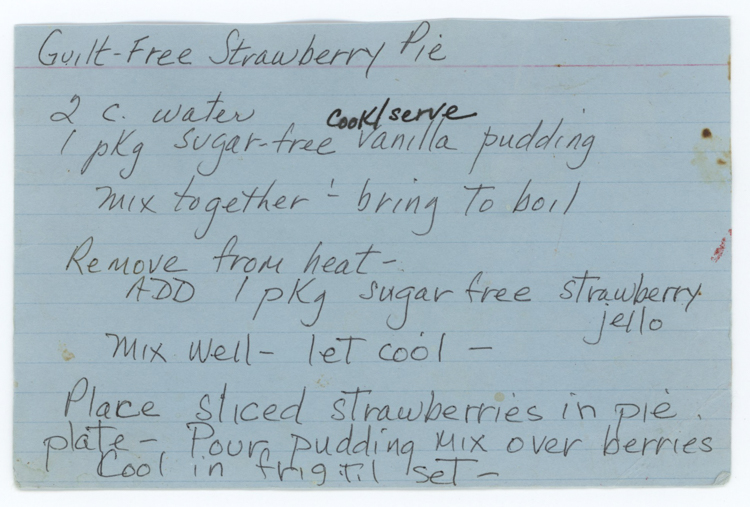 Guilt-Free Strawberry Pie
2 c. water
cook/serve
1 pkg sugar-free vanilla pudding
mix together - bring to boil
Remove from heat-
ADD 1 pkg sugar free strawberry
jello
Mix well - let cool -
Place sliced strawberries in pie
plate - Pour pudding mix over berries
Cool in frig til set -